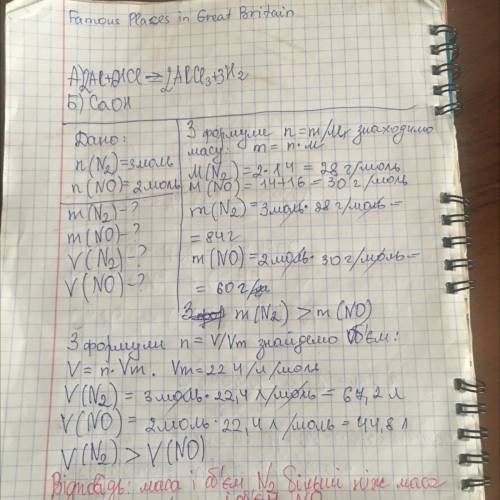 Famous Places in Great Britain
А) 2Al+HCl=2AlCl₃+3H₂
Б) CaOH
Дано:
n(N₂)=3моль
n(NO)=2моль
m(N₂)-?
m(NO)-?
V(N₂)-?
V(NO)-?
З формули n=m/Mr знаходимо
масу: m=n·м
M(N₂)=2·14=28г/моль
M(NO)=14+16=30г/моль
m(N₂)=3моль·28г/моль=
=84г
m(NO)=2моль·30г/моль=
=60г
m(N₂)>m(NO)
З формули n=V/Vm знайдемо об'єм:
V=n·Vm. Vm=22,4л/моль
V(N₂)=3моль·22,4л/моль=67,2л
V(NO)=2моль·22,4л/моль=44,8л
V(N₂)>V(NO)
Відповідь: маса і об'єм N₂ більші ніж маса
і об'єм NO